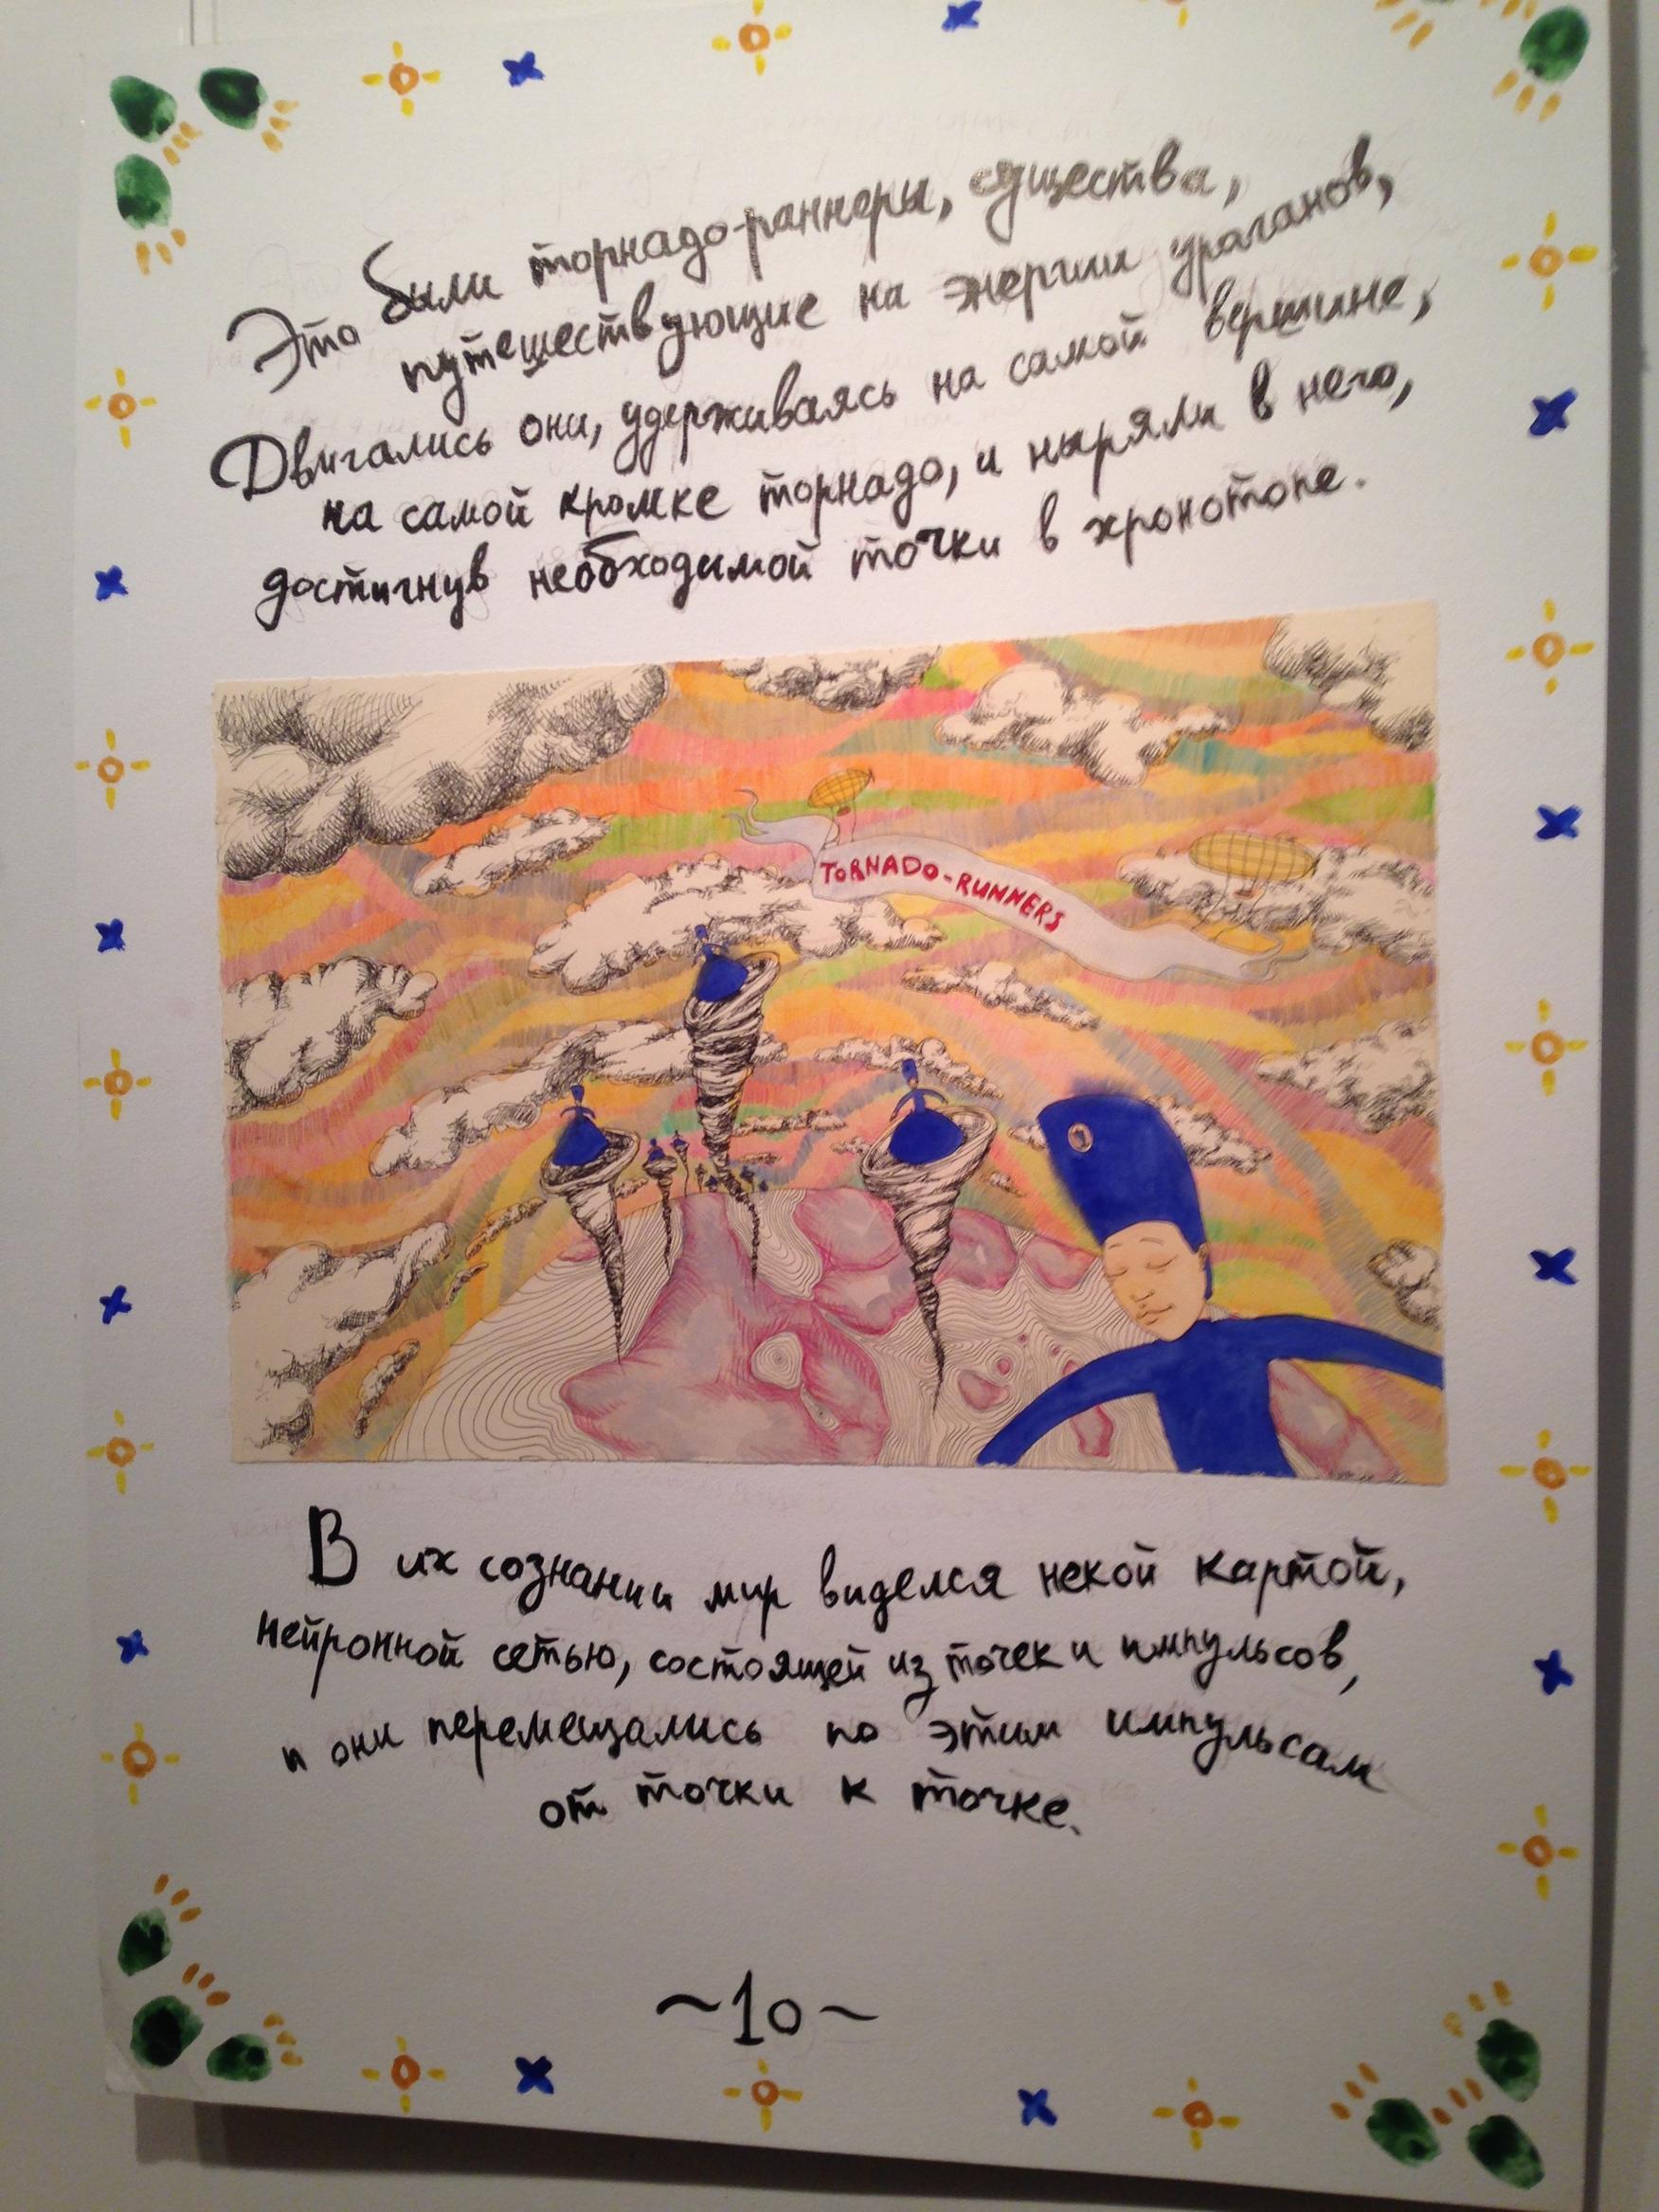 Это были торнадо-раннеры, существа,
путешествующие на энергии ураганов,
Двигались они, удерживаясь на самой вершине,
на самой кромке торнадо, и ныряли в него,
достигнув необходимой точки в хронотопе.
TORNADO-RUNNERS
В их сознании мир виделся некой картой,
нейронной сетью, состоящей из точек и импульсов,
и они перемещались по этим импульсам
от точки к точке.
~10~